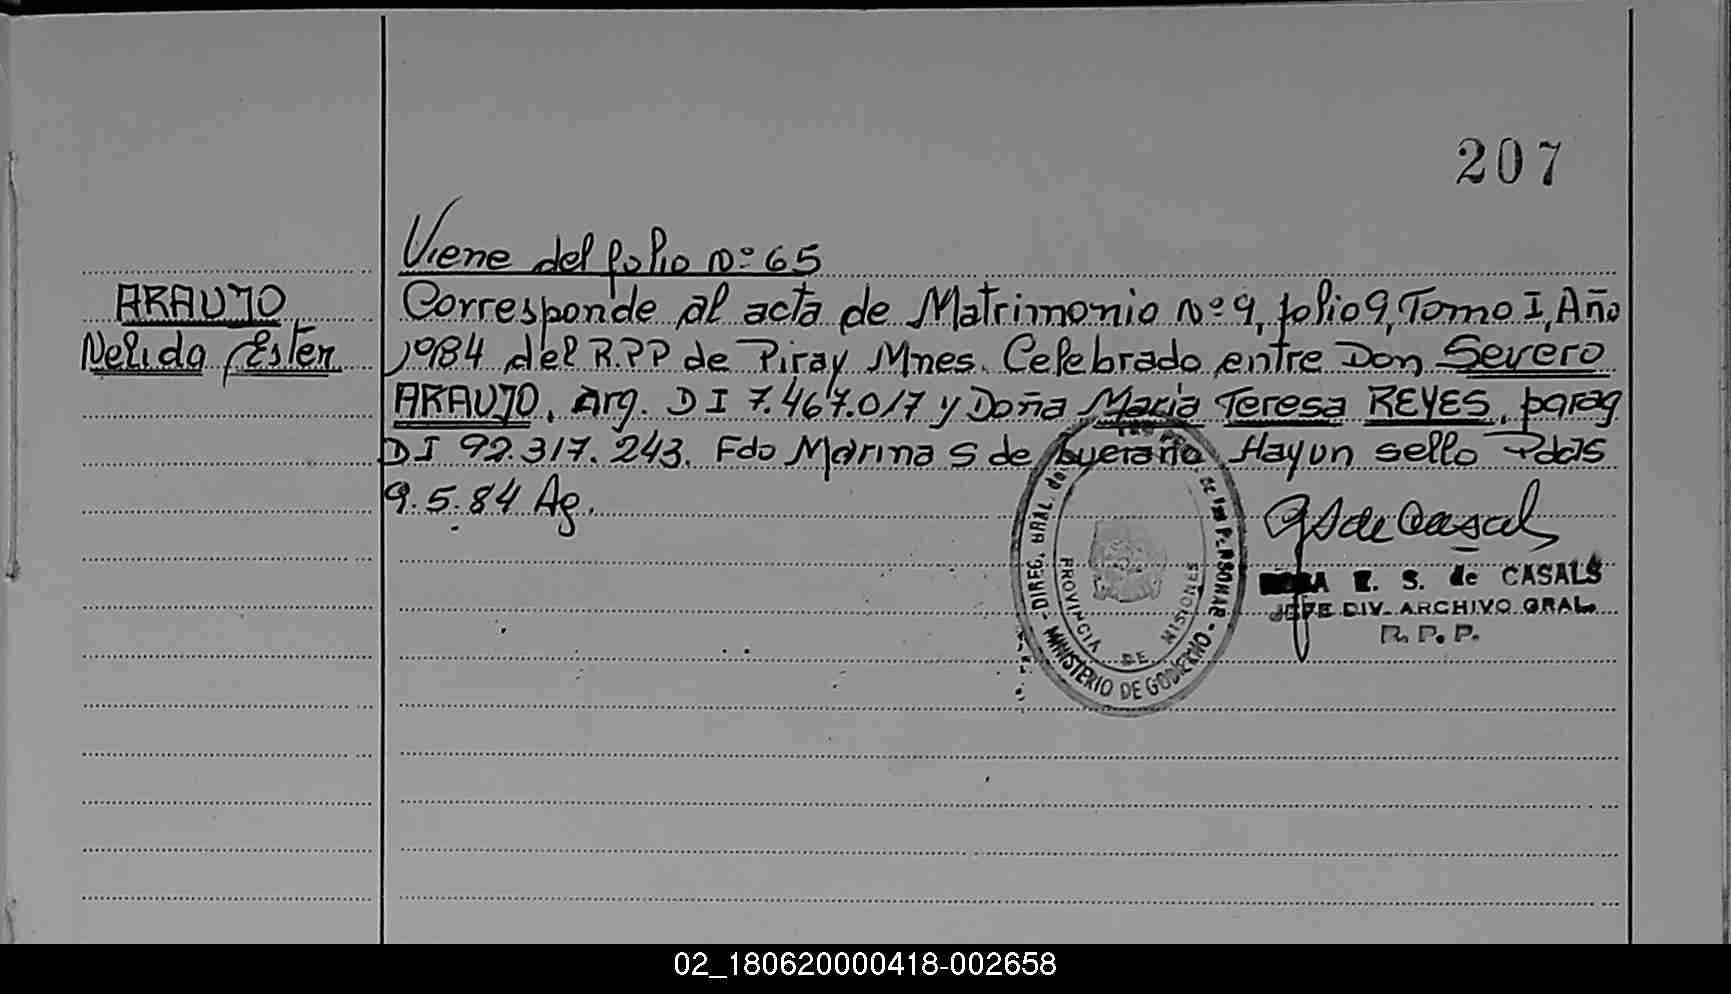 207
Viene del folio Nº 65
ARAUJO
Nelida Ester
Corresponde al acta de Matrimonio Nº 9, folio 9, Tomo I, Año
1984 del R.P.P de Piray Mnes. Celebrado entre Don Severo
ARAUJO, Arg. D I 7.467.017 y Doña Maria Teresa REYES, parag
DI 92.317.243. Fdo Marina S de Hay un sello Pdas
9.5.84 Ag.
E. S. de CASALS
JEFE DIV. ARCHIVO GRAL.
R. P. P.
DIREG. GRAL. del
MINISTERIO DE GOBIERNO
PROVINCIA DE MISIONES
02_180620000418-002658